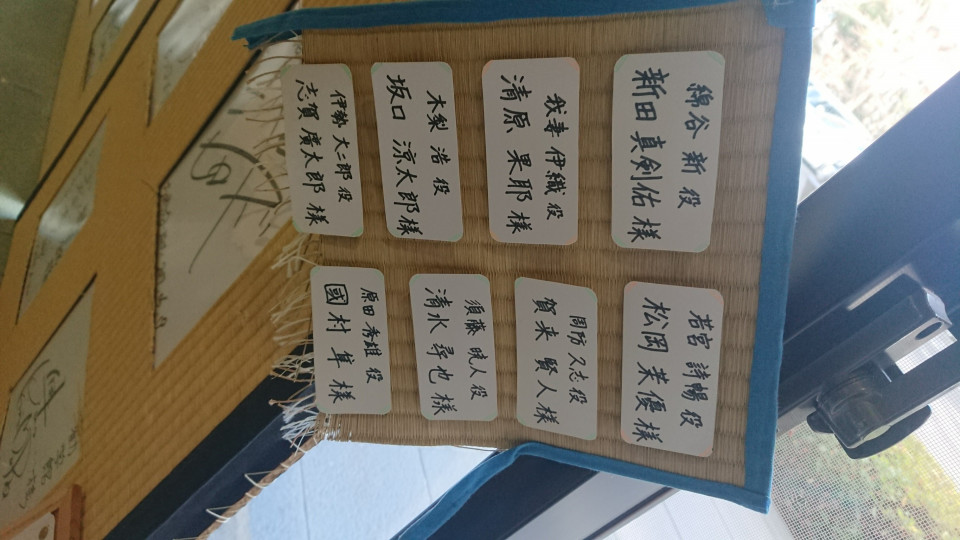 綿谷 新 役
新田 真剣佑 様
我妻 伊織 役
清原 果耶 様
木梨 浩 役
坂口 涼太郎 様
伊勢 大二郎 役
志賀 廣太郎 様
若宮 詩暢 役
松岡 茉優 様
周防 久志 役
賀来 賢人 様
須藤 暁人 役
清水 尋也 様
原田 秀雄 役
國村 隼 様